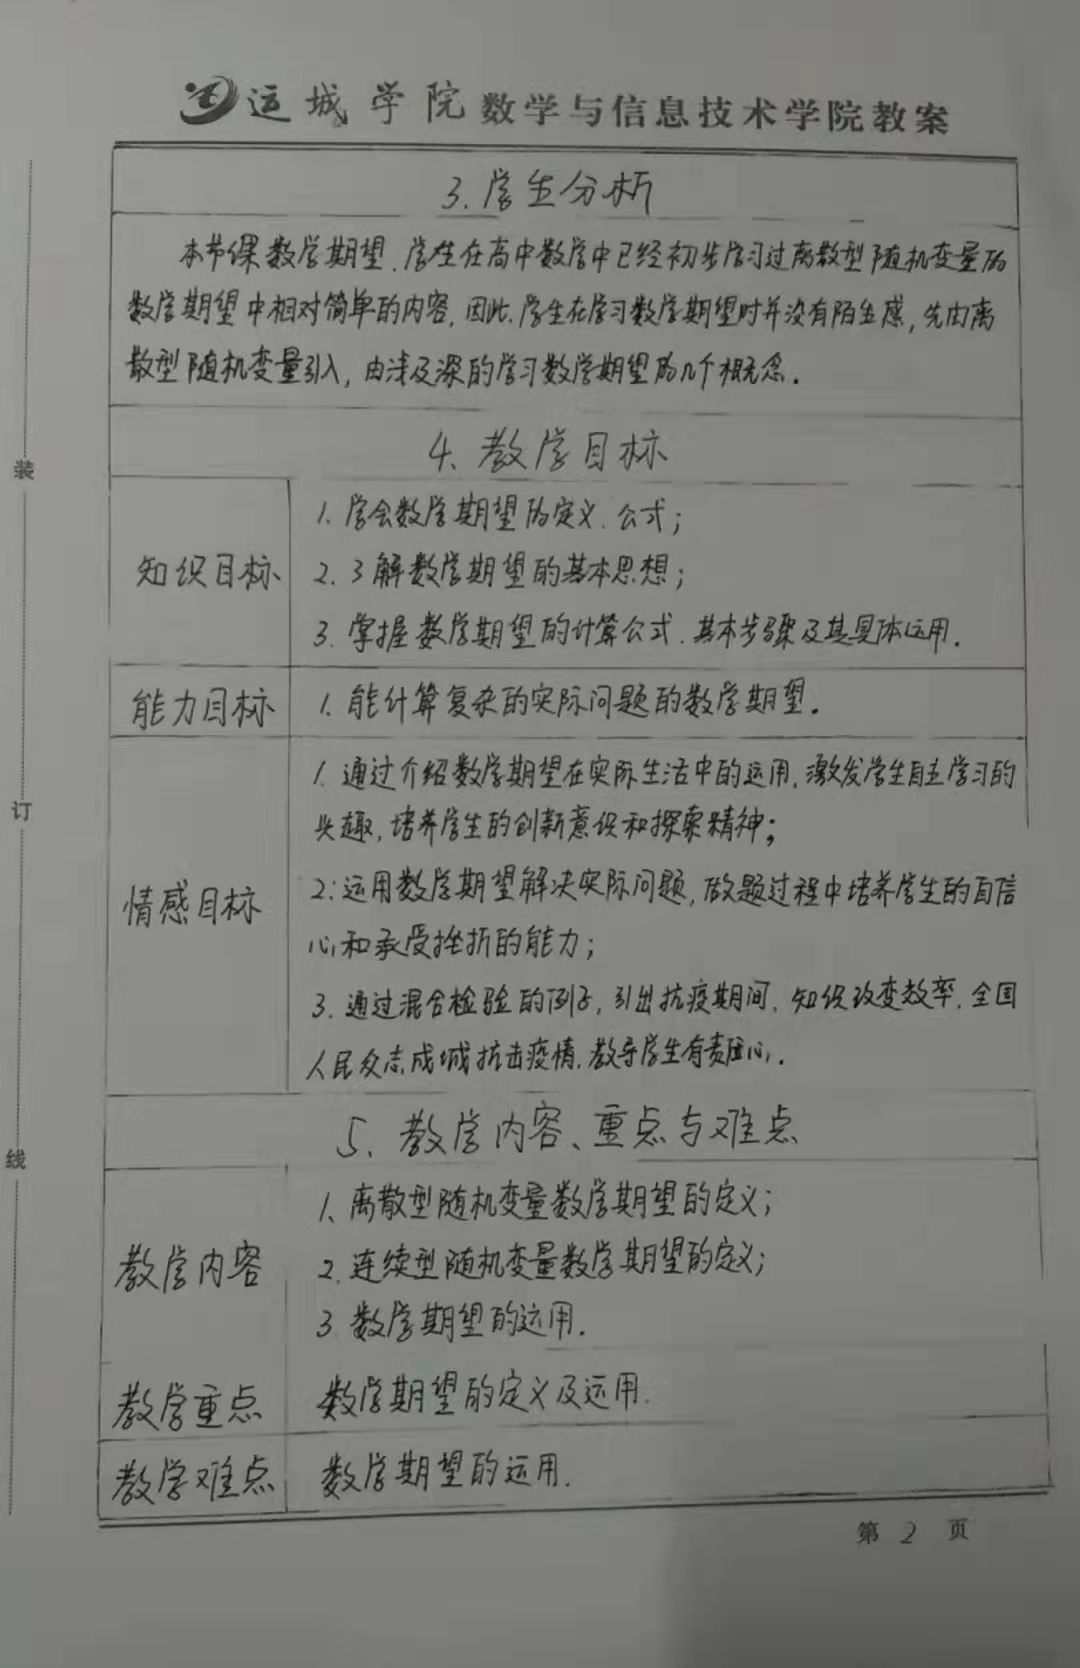 运城学院 数学与信息技术学院教案
3.学生分析
本节课数学期望.学生在高中数学中已经初步学习过离散型随机变量的
数学期望中相对简单的内容,因此.学生在学习数学期望时并没有陌生感,先由离
散型随机变量引入,由浅及深的学习数学期望的几个概念.
4.教学目标
知识目标
1.学会数学期望的定义.公式;
2.了解数学期望的基本思想;
3.掌握数学期望的计算公式.基本步骤及其具体运用.
能力目标
1.能计算复杂的实际问题的数学期望.
情感目标
1.通过介绍数学期望在实际生活中的运用,激发学生自主学习的
兴趣,培养学生的创新意识和探索精神;
2.运用数学期望解决实际问题,做题过程中培养学生的自信
心和承受挫折的能力;
3.通过混合检验的例子,引出抗疫期间,知识改变效率.全国
人民众志成城抗击疫情.教导学生有责任心.
5.教学内容、重点与难点
教学内容
1.离散型随机变量数学期望的定义;
2.连续型随机变量数学期望的定义;
3.数学期望的运用.
教学重点
数学期望的定义及运用.
教学难点
数学期望的运用.
第 2 页
装
订
线